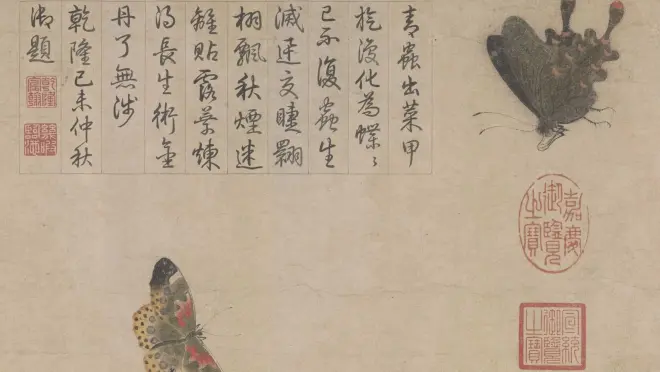 青蟲出菜甲
旋復化為蝶〻
已不復蟲生
滅迅交睫翾
栩飄秋煙迷
離貼露葉煉
得長生術金
丹了無涉
乾隆己未仲秋
御題
嘉慶御覽之寶
宣統御覽之寶